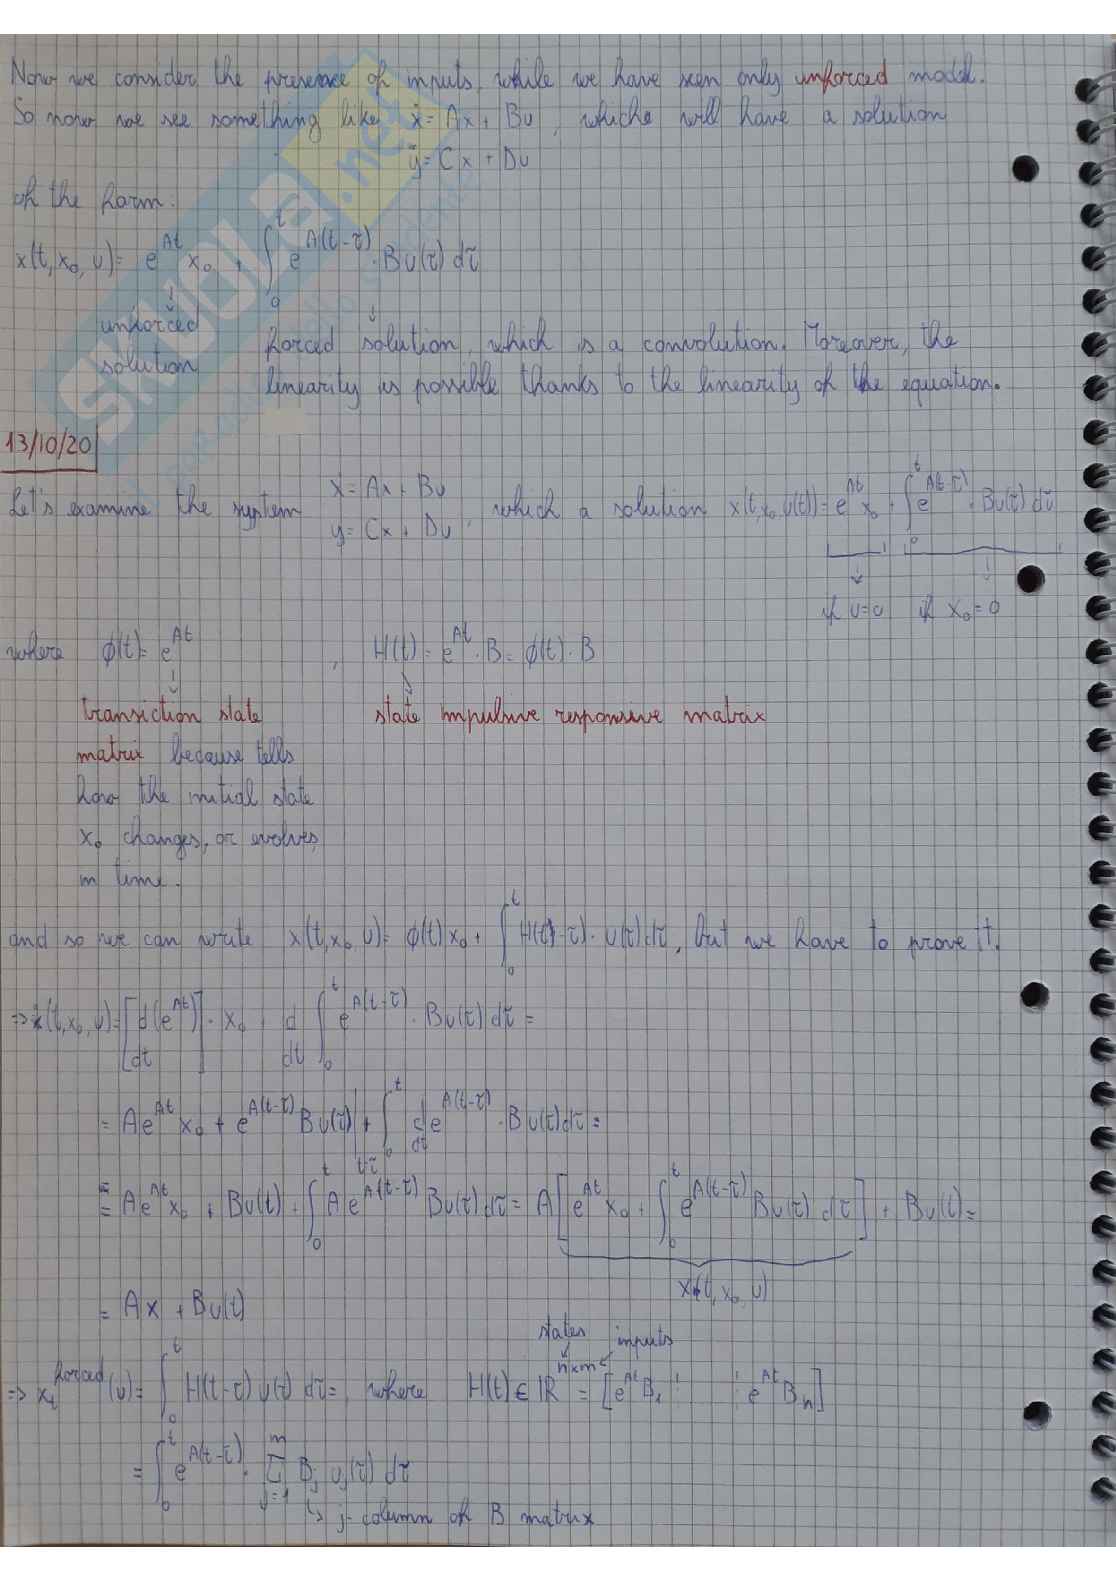 Now we consider the presence of inputs, while we have seen only unforced model.
So now we see something like ẋ = Ax + Bu, whiche will have a solution
y = Cx + Du
of the form:
x(t, x₀, u) = e^{At} x₀ + ∫₀ᵗ e^{A(t-τ)} · Bu(τ) dτ
unforced solution
forced solution, which is a convolution. Moreover, the
linearity is possible thanks to the linearity of the equation.
13/10/20
Let's examine the system ẋ = Ax + Bu, which a solution x(t, x₀, u(t)) = e^{At} x₀ + ∫₀ᵗ e^{A(t-τ)} · Bu(τ) dτ
y = Cx + Du
if u=0 if x₀=0
where ϕ(t) = e^{At}, H(t) = e^{At} · B = ϕ(t) · B
transiction state state impulsive responsive matrix
matrix because tells
how the initial state
x₀ changes, or evolves,
in time.
and so we can write x(t, x₀, u) = ϕ(t) x₀ + ∫₀ᵗ H(t-τ) · u(τ) dτ, but we have to prove it.
=> ẋ(t, x₀, u) = [d(e^{At})/dt] · x₀ + d/dt ∫₀ᵗ e^{A(t-τ)} · Bu(τ) dτ =
= Ae^{At} x₀ + e^{A(t-τ)} Bu(τ)|_{t=τ} + ∫₀ᵗ d/dt e^{A(t-τ)} · Bu(τ) dτ =
= Ae^{At} x₀ + Bu(t) + ∫₀ᵗ A e^{A(t-τ)} Bu(τ) dτ = A[e^{At} x₀ + ∫₀ᵗ e^{A(t-τ)} Bu(τ) dτ] + Bu(t) =
x(t, x₀, u)
= Ax + Bu(t)
states inputs
=> x_t^{forced}(u) = ∫₀ᵗ H(t-τ) u(τ) dτ =, where H(t) ∈ ℝ^{n×m} = [e^{At} B₁ ¦ ¦ e^{At} Bₙ]
= ∫₀ᵗ e^{A(t-τ)} · Σ_{j=1}^{m} B_j u_j(τ) dτ
↳ j-column of B matrix
SKUOLA.net